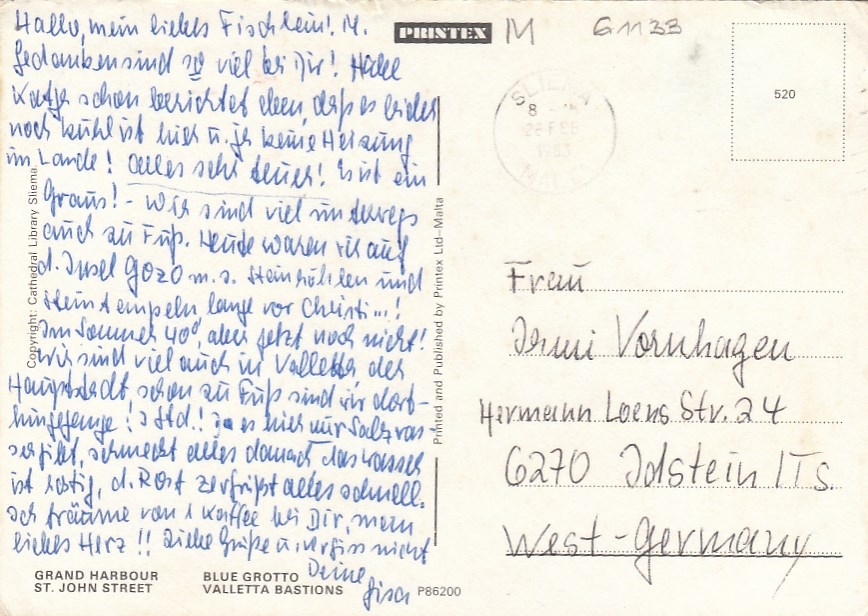 Hallo, mein liebes Fischlein! M.
Gedanken sind so viel bei Dir! Habe
Katja schon berichtet eben, daß es leider
noch kühl ist hier u. ja keine Heizung
im Lande! alles sehr teuer! Es ist ein
Graus! - Wir sind viel unterwegs
auch zu Fuß. Heute waren wir auf
d. Insel GOZO m. s. Steinhöhlen und
Steintempeln lange vor Christi...!
Im Sommer 40°, aber jetzt noch nicht!
Wir sind viel auch in Valletta der
Hauptstadt, schon zu Fuß sind wir dort-
hingegangen! 3 Std.! Da es hier nur Salzwas-
ser gibt, schmeckt alles danach das Wasser
ist rostig, d. Rost zerfrißt alles schnell.
Ich träume von 1 Kaffee bei Dir, mein
liebes Herz!! Liebe Grüße u. vergiss nicht
Deine
Gisa
GRAND HARBOUR
ST. JOHN STREET
BLUE GROTTO
VALLETTA BASTIONS
P86200
Copyright: Cathedral Library Sliema.
Printed and Published by Printex Ltd—Malta
PRINTEX
M
G1133
SLIEMA
8
28 FEB
1983
MALTA
520
Frau
Irmi Vornhagen
Hermann Loens Str. 24
6270 Idstein / Ts.
West-Germany